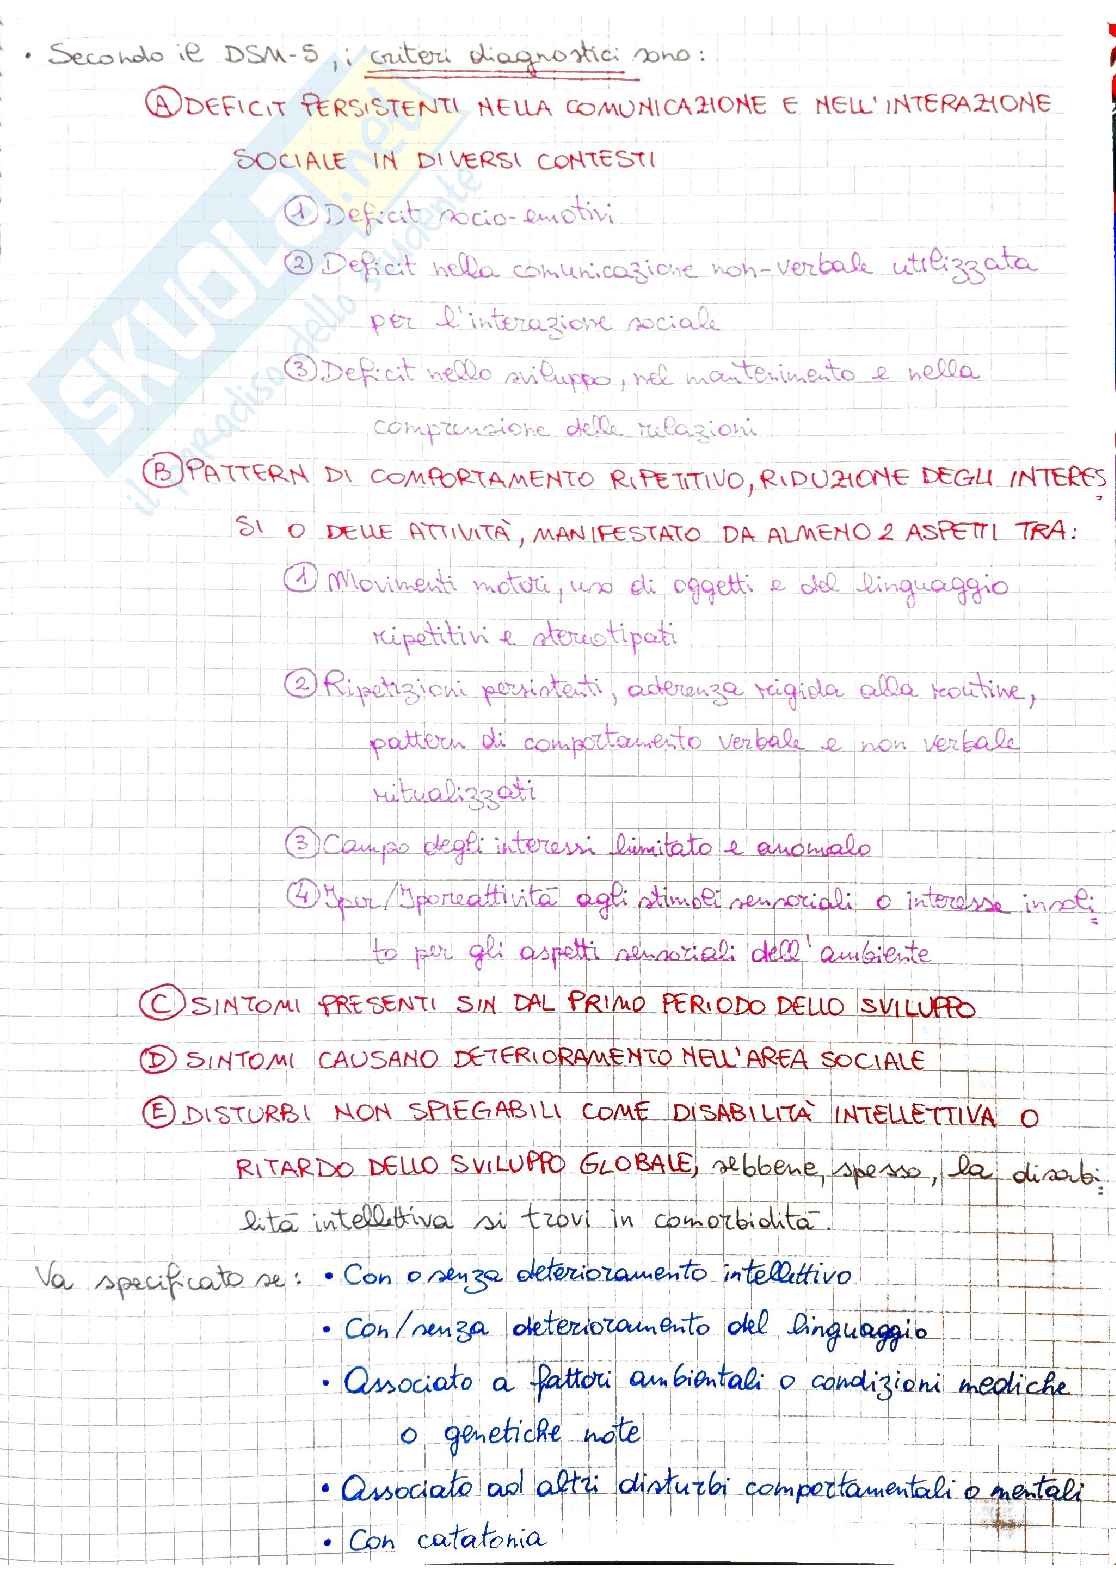 • Secondo il DSM-5, i criteri diagnostici sono:
Ⓐ DEFICIT PERSISTENTI NELLA COMUNICAZIONE E NELL'INTERAZIONE
SOCIALE IN DIVERSI CONTESTI
① Deficit socio-emotivi
② Deficit nella comunicazione non-verbale utilizzata
per l'interazione sociale
③ Deficit nello sviluppo, nel mantenimento e nella
comprensione delle relazioni
Ⓑ PATTERN DI COMPORTAMENTO RIPETITIVO, RIDUZIONE DEGLI INTERES=
SI O DELLE ATTIVITÀ, MANIFESTATO DA ALMENO 2 ASPETTI TRA:
① Movimenti motori, uso di oggetti e del linguaggio
ripetitivi e stereotipati
② Ripetizioni persistenti, aderenza rigida alla routine,
pattern di comportamento verbale e non verbale
ritualizzati
③ Campo degli interessi limitato e anomalo
④ Iper/Iporeattività agli stimoli sensoriali o interesse insoli=
to per gli aspetti sensoriali dell'ambiente
Ⓒ SINTOMI PRESENTI SIN DAL PRIMO PERIODO DELLO SVILUPPO
Ⓓ SINTOMI CAUSANO DETERIORAMENTO NELL'AREA SOCIALE
Ⓔ DISTURBI NON SPIEGABILI COME DISABILITÀ INTELLETTIVA O
RITARDO DELLO SVILUPPO GLOBALE, sebbene, spesso, la disabi=
lità intellettiva si trovi in comorbidità.
Va specificato se: • Con o senza deterioramento intellettivo
• Con/senza deterioramento del linguaggio
• Associato a fattori ambientali o condizioni mediche
o genetiche note
• Associato ad altri disturbi comportamentali o mentali
• Con catatonia
SKUOLA.net
il paradiso dello studente